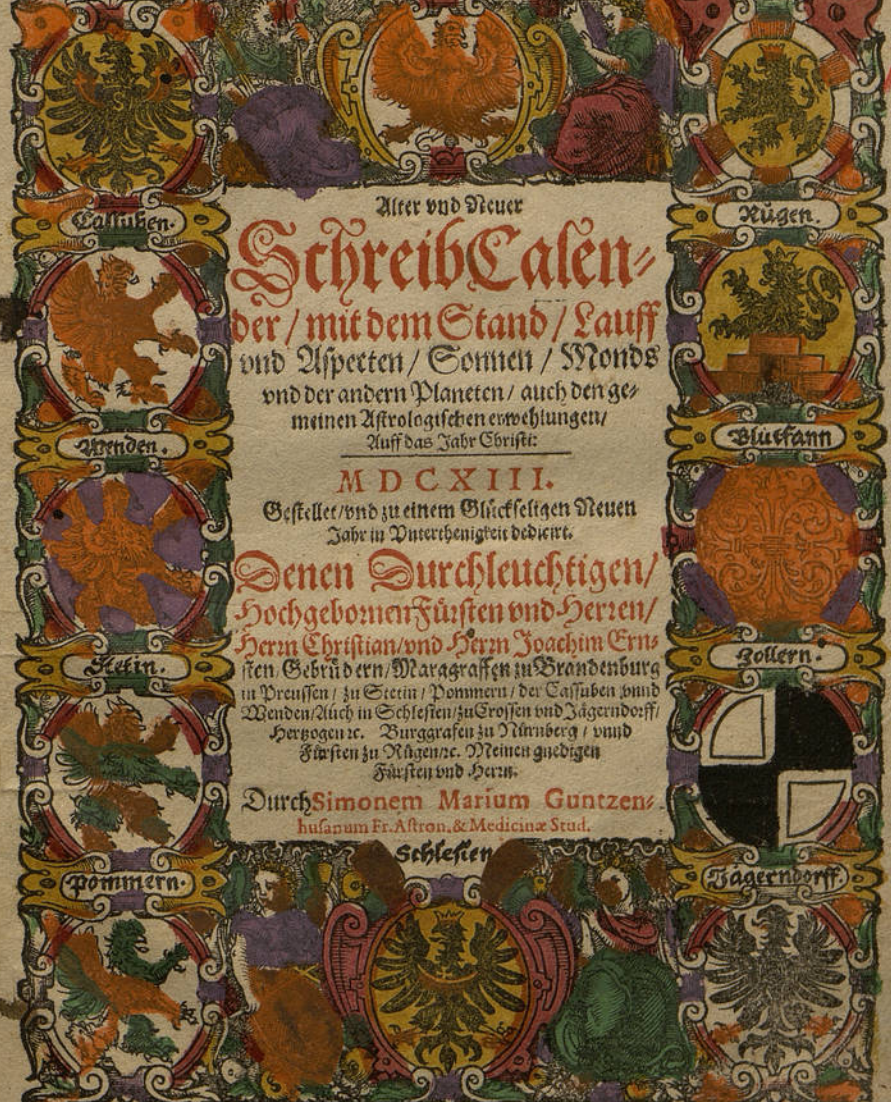 Alter vnd Neuer
SchreibCalen⸗
der / mit dem Stand / Lauff
vnd Aspecten / Sonnen / Monds
vnd der andern Planeten / auch den ge⸗
meinen Astrologischen erwehlungen /
Auff das Jahr Christi:
MDCXIII.
Gestellet / vnd zu einem Glückseligen Neuen
Jahr in Vnterthenigkeit dedicirt.
Denen Durchleuchtigen /
Hochgebornen Fürsten vnd Herren /
Herrn Christian / vnd Herrn Joachim Ern⸗
sten / Gebrüdern / Marggraffen zu Brandenburg
in Preussen / zu Stetin / Pommern / der Cassuben vnnd
Wenden / Auch in Schlesien / zu Crossen vnd Jägerndorff /
Hertzogen ꝛc. Burggrafen zu Nürnberg / vnnd
Fürsten zu Rügen / ꝛc. Meinen gnedigen
Fürsten vnd Herrn.
Durch Simonem Marium Guntzen⸗
husanum Fr. Astron. & Medicinæ Stud.
Cassuben.
Wenden.
Stetin.
Pommern.
Rügen.
Zollern.
Jägerndorff.
Schlesien